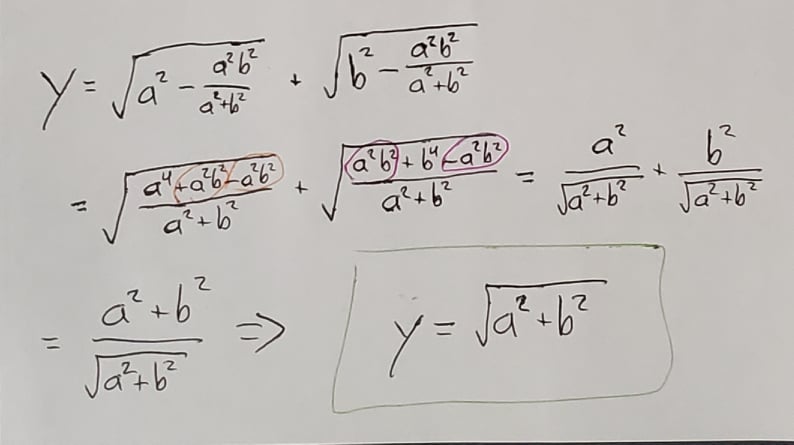 y = √(a² − a²b²/(a²+b²)) + √(b² − a²b²/(a²+b²))
= √((a⁴+a²b²−a²b²)/(a²+b²)) + √((a²b²+b⁴−a²b²)/(a²+b²)) = a²/√(a²+b²) + b²/√(a²+b²)
= (a²+b²)/√(a²+b²) ⇒ y = √(a²+b²)